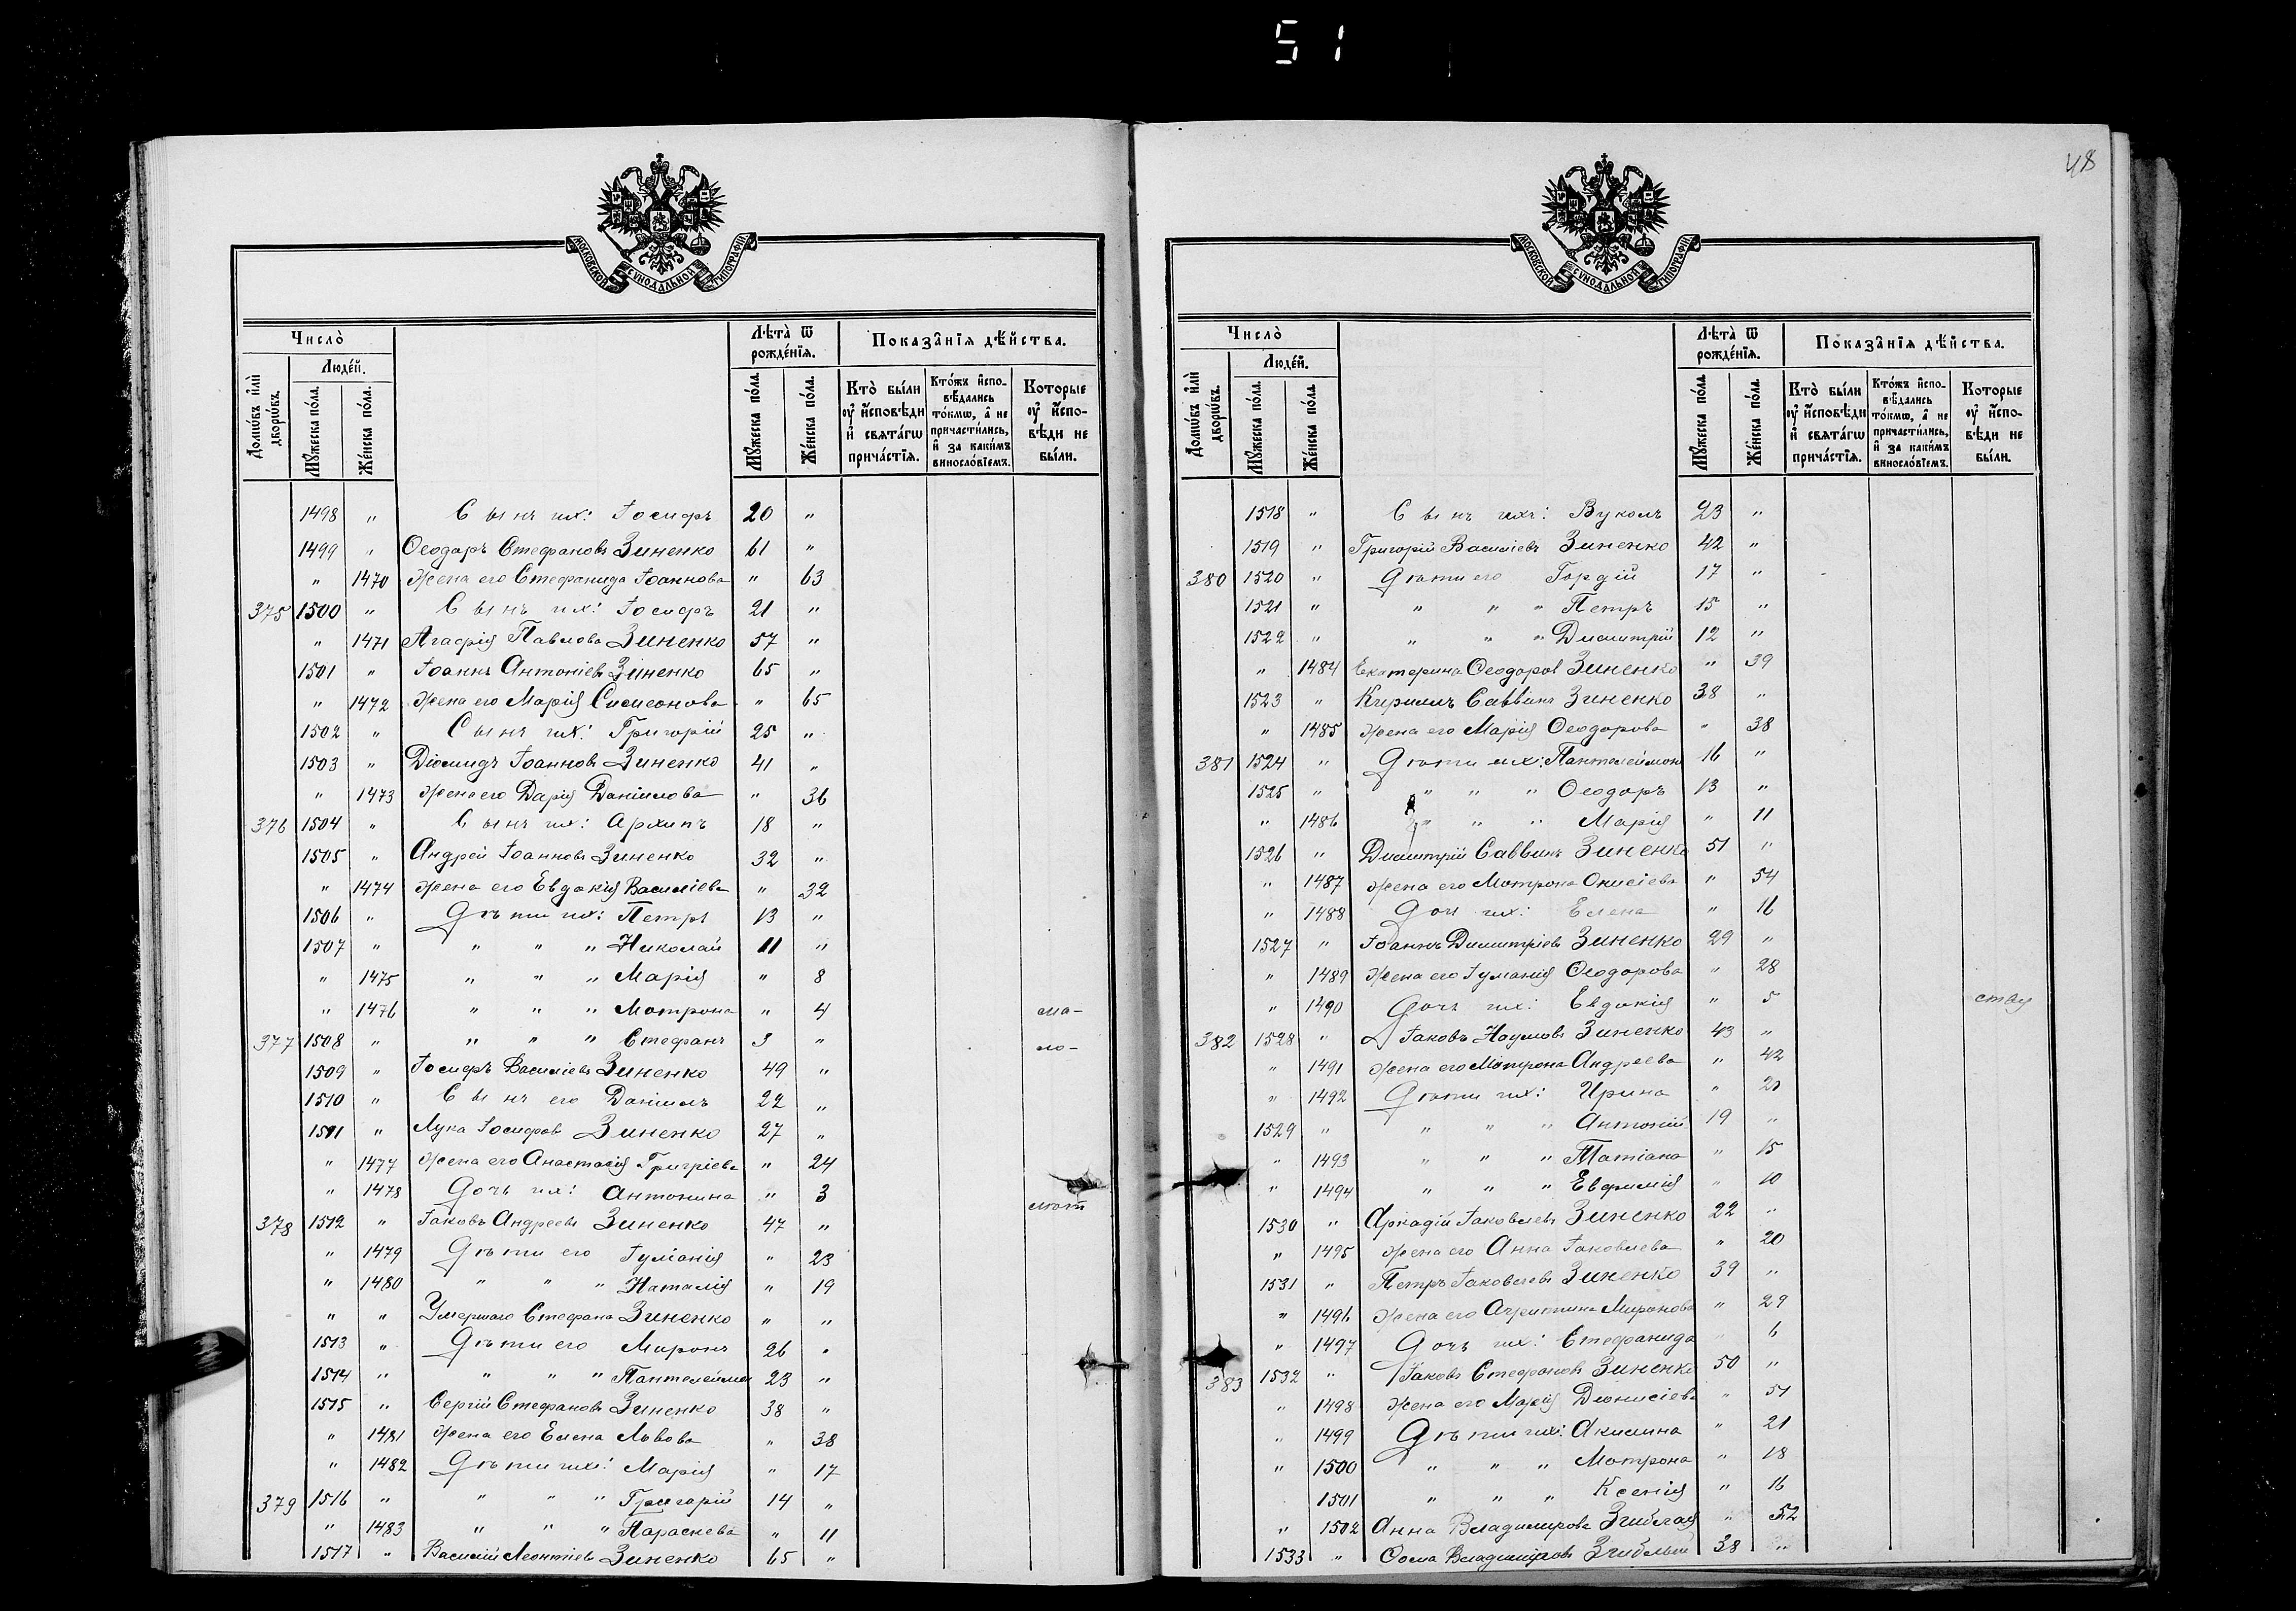 51
48
МОСКОВСКОЙ СѴНОДАЛЬНОЙ ТИПОГРАФІИ.
Число̀
Людéй.
Домѡ́въ и҆лѝ дворѡ́въ.
Мꙋ́жеска по́ла.
Же́нска по́ла.
Лѣ́та ѿ рожде́нїѧ.
Мꙋ́жеска по́ла.
Же́нска по́ла.
Показа̑нїѧ дѣ́йства.
Кто̀ бы́ли ᲂу҆ и҆́сповѣди и҆ свѧта́гѡ прича́стїѧ.
Кто́жъ и҆спо-вѣ́дались то́кмѡ, а҆ не причасти́лись, и҆ за каки́мъ винослóвїемъ.
Которые ᲂу҆ и҆́спо-вѣди не бы́ли.
1498 " Сынъ ихъ: Іосифъ 20 "
1499 " Ѳеодоръ Стефановъ Зиненко 61 "
" 1470 Жена его Стефанида Іоаннова " 63
375 1500 " Сынъ ихъ: Іосифъ 21 "
" 1471 Агафія Павлова Зиненко 57 "
1501 " Іоаннъ Антоніевъ Зиненко 65 "
" 1472 Жена его Марія Симеонова " 65
1502 " Сынъ ихъ: Григорій 25 "
1503 " Діомидъ Іоанновъ Зиненко 41 "
" 1473 Жена его Дарія Даніилова " 36
376 1504 " Сынъ ихъ: Архипъ 18 "
1505 " Андрей Іоанновъ Зиненко 32 "
" 1474 Жена его Евдокія Василіева " 32
1506 " Дѣти ихъ: Петръ 13 "
1507 " " " " Николай 11 "
" 1475 " " " Марія " 8
" 1476 " " " Мотрона " 4 ма-
377 1508 " " " " Стефанъ 3 " ло-
1509 " Іосифъ Василіевъ Зиненко 49 "
1510 " Сынъ его Даніилъ 22 "
1511 " Лука Іосифовъ Зиненко 27 "
" 1477 Жена его Анастасія Григріева " 24
" 1478 Дочь ихъ: Антонина " 3 лѣт
378 1512 " Іаковъ Андреевъ Зиненко 47 "
" 1479 Дѣти его Іуліанія " 23
" 1480 " " " Наталія " 19
" " Умершаго Стефана Зиненко " "
1513 " Дѣти его Миронъ 26 "
1514 " " " " Пантелеймон 23 "
1515 " Сергій Стефановъ Зиненко 38 "
" 1481 Жена его Елена Львова " 38
" 1482 Дѣти ихъ: Марія " 17
379 1516 " " " " Григорій 14 "
" 1483 " " " Параскева " 11
1517 " Василій Леонтіевъ Зиненко 65 "
МОСКОВСКОЙ СѴНОДАЛЬНОЙ ТИПОГРАФІИ.
Число̀
Людéй.
Домѡ́въ и҆лѝ дворѡ́въ.
Мꙋ́жеска по́ла.
Же́нска по́ла.
Лѣ́та ѿ рожде́нїѧ.
Мꙋ́жеска по́ла.
Же́нска по́ла.
Показа̑нїѧ дѣ́йства.
Кто̀ бы́ли ᲂу҆ и҆́сповѣди и҆ свѧта́гѡ прича́стїѧ.
Кто́жъ и҆спо-вѣ́дались то́кмѡ, а҆ не причасти́лись, и҆ за каки́мъ винослóвїемъ.
Которые ᲂу҆ и҆́спо-вѣди не бы́ли.
1518 " Сынъ ихъ: Вуколъ 23 "
1519 " Григорій Василіевъ Зиненко 42 "
380 1520 " Дѣти его Гордій 17 "
1521 " " " " Петръ 15 "
1522 " " " " Димитрій 12 "
" 1484 Екатерина Ѳеодоров Зиненко " 39
1523 " Кириллъ Саввинъ Зиненко 38 "
" 1485 Жена его Марія Ѳеодорова " 38
381 1524 " Дѣти ихъ: Пантелеймон 16 "
1525 " " " " Ѳеодоръ 13 "
" 1486 " " " Марія " 11
1526 " Димитрій Саввинъ Зиненко 51 "
" 1487 Жена его Мотрона Онисіева " 54
" 1488 Доч ихъ: Елена " 16
1527 " Іоаннъ Димитріевъ Зиненко 29 "
" 1489 Жена его Іуліанія Ѳеодорова " 28
" 1490 Дочь ихъ: Евдокія " 5 ству
382 1528 " Іаковъ Наумовъ Зиненко 43 "
" 1491 Жена его Мотрона Андреева " 42
" 1492 Дѣти ихъ: Ирина " 21
1529 " " " " Антоній 19 "
" 1493 " " " Татіана " 15
" 1494 " " " Евфимія " 10
1530 " Аркадій Іаковлевъ Зиненко 22 "
" 1495 Жена его Анна Іаковлева " 20
1531 " Петръ Іаковлевъ Зиненко 39 "
" 1496 Жена его Мironова " 29
" 1497 Дочь ихъ: Стефанида " 6
383 1532 " Іаковъ Стефановъ Зиненко 50 "
" 1498 Жена его Марія Діонисіева " 51
" 1499 Дѣти ихъ: Акилина " 21
" 1500 " " " Мотрона " 18
1501 " " " Ксенія " 16
" 1502 Анна Владимирова Згиблая " 52
1533 " Ѳома Владимировъ Згиблый 38 "